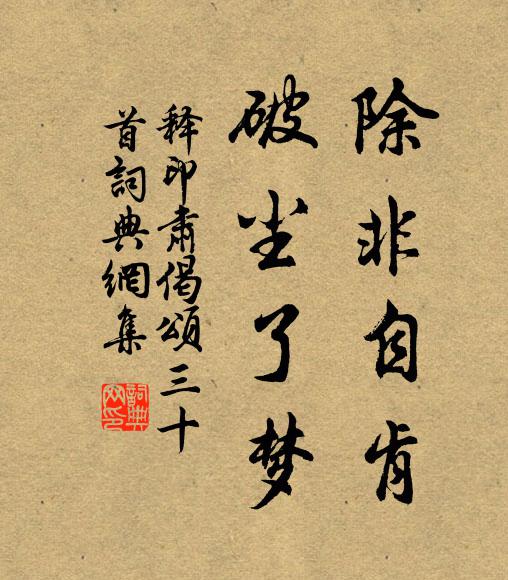 除非自肯
破尘了梦
释印肃偈頌三十
首詞典網集
詞典
网印